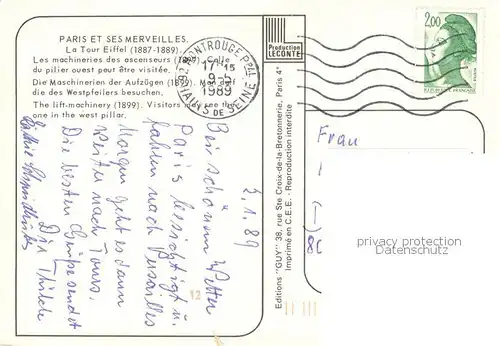 PARIS ET SES MERVEILLES.
La Tour Eiffel (1887-1889).
Les machineries des ascenseurs (1899). Celle
du pilier ouest peut être visitée.
Die Maschinerien der Aufzügen (1899). Man darf
die des Westpfeilers besuchen.
The lift machinery (1899). Visitors may see the
one in the west pillar.
Production
LECONTE
92 MONTROUGE PPAL
17-15
9-5
1989
HAUTS DE SEINE
2,00
REPUBLIQUE FRANÇAISE
3.1.89
Bei schönem Wetter
Paris besichtigt u.
fahren nach Versailles
Morgen geht es dann
weiter nach Tours.
Die besten Grüße sendet
Dir
Editions "GUY" 38, rue Ste Croix-de-la-Bretonnerie, Paris 4e
Imprimé en C.E.E. - Reproduction interdite
12
Frau
privacy protection
Datenschutz